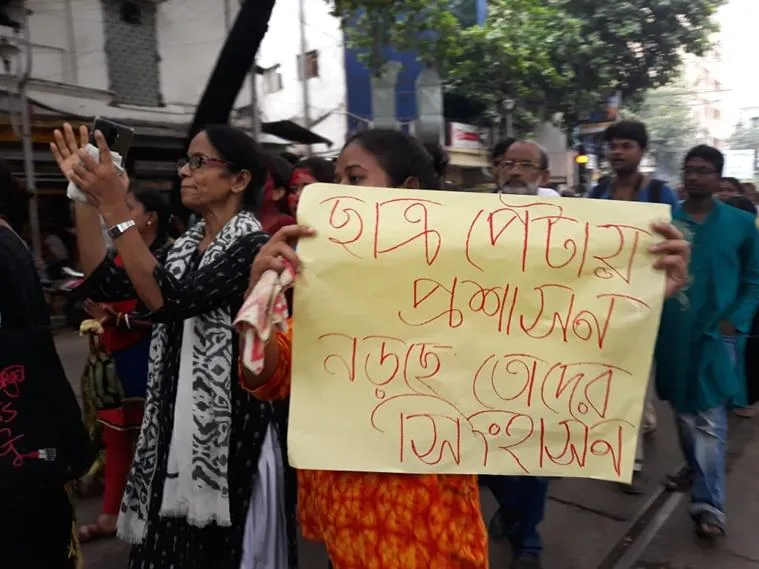 ছাত্র পেটায়
প্রশাসন
নড়ছে তোদের
সিংহাসন